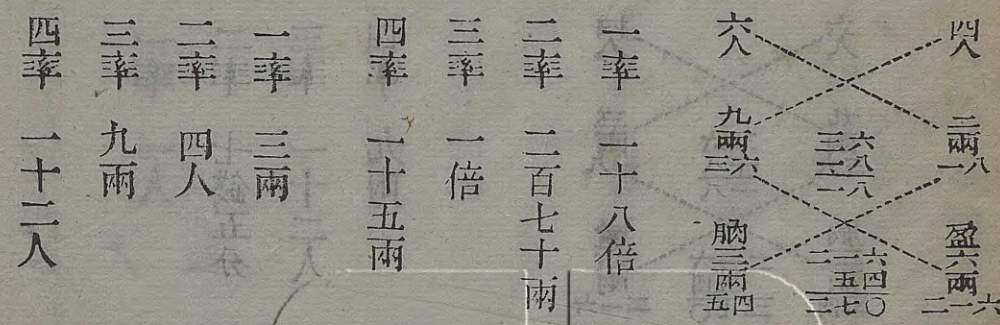 四人 三兩 一八 盈六兩 二一六
三六 一八 一八 二一六 五四 二七〇
六人 九兩 三六 朒三兩 五四
一率 一十八倍
二率 二百七十兩
三率 一倍
四率 一十五兩
一率 三兩
二率 四人
三率 九兩
四率 一十二人